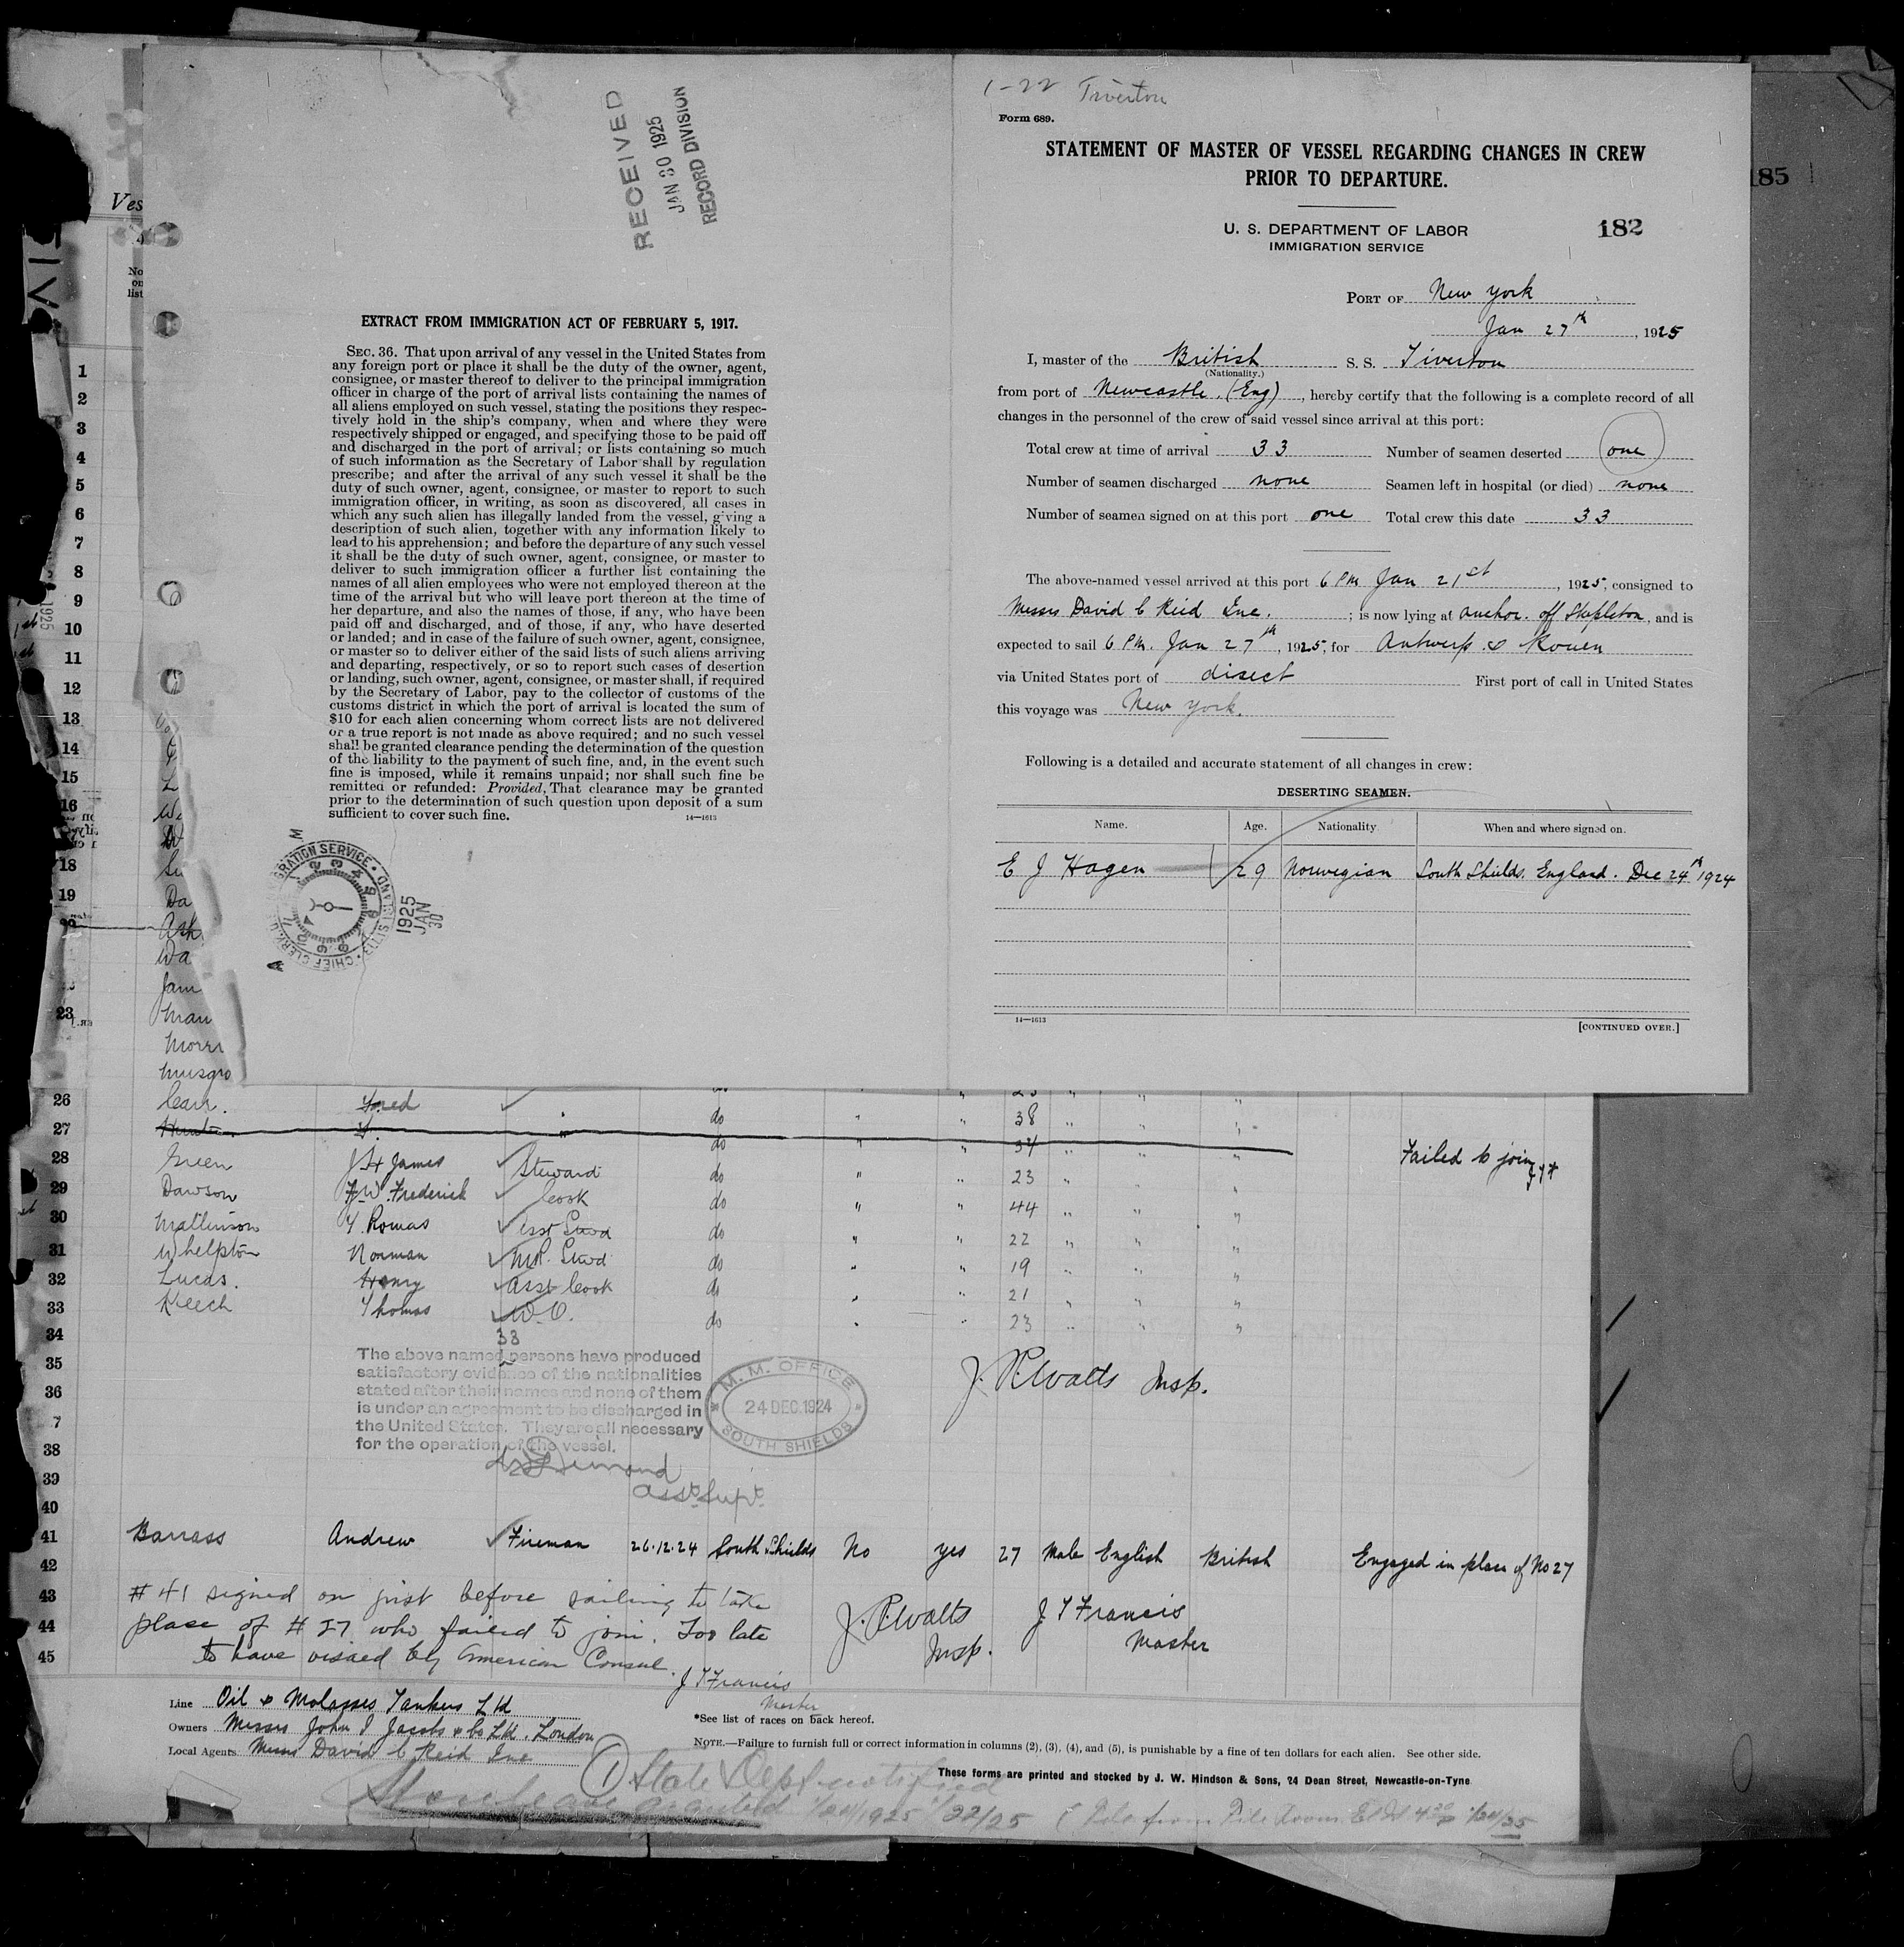 1-22 Tiverton
Form 689.
STATEMENT OF MASTER OF VESSEL REGARDING CHANGES IN CREW
PRIOR TO DEPARTURE.
U. S. DEPARTMENT OF LABOR
IMMIGRATION SERVICE
182
185
PORT OF New York
Jan 27th, 1925
I, master of the British S. S. Tiverton
(Nationality.)
from port of Newcastle. (Eng), hereby certify that the following is a complete record of all
changes in the personnel of the crew of said vessel since arrival at this port:
Total crew at time of arrival 33 Number of seamen deserted one
Number of seamen discharged none Seamen left in hospital (or died) none
Number of seamen signed on at this port one Total crew this date 33
The above-named vessel arrived at this port 6 PM Jan 21st, 1925, consigned to
Messrs David C Reid Inc. ; is now lying at anchor. off Stapleton, and is
expected to sail 6 PM. Jan 27th, 1925, for Antwerp & Rouen
via United States port of direct First port of call in United States
this voyage was New York.
Following is a detailed and accurate statement of all changes in crew:
DESERTING SEAMEN.
Name. Age. Nationality When and where signed on.
E J Hagen 29 Norwegian South Shields. England. Dec 24th 1924
14—1613
[CONTINUED OVER.]
RECEIVED
JAN 30 1925
RECORD DIVISION
EXTRACT FROM IMMIGRATION ACT OF FEBRUARY 5, 1917.
SEC. 36. That upon arrival of any vessel in the United States from
any foreign port or place it shall be the duty of the owner, agent,
consignee, or master thereof to deliver to the principal immigration
officer in charge of the port of arrival lists containing the names of
all aliens employed on such vessel, stating the positions they respec-
tively hold in the ship's company, when and where they were
respectively shipped or engaged, and specifying those to be paid off
and discharged in the port of arrival; or lists containing so much
of such information as the Secretary of Labor shall by regulation
prescribe; and after the arrival of any such vessel it shall be the
duty of such owner, agent, consignee, or master to report to such
immigration officer, in writing, as soon as discovered, all cases in
which any such alien has illegally landed from the vessel, giving a
description of such alien, together with any information likely to
lead to his apprehension; and before the departure of any such vessel
it shall be the duty of such owner, agent, consignee, or master to
deliver to such immigration officer a further list containing the
names of all alien employees who were not employed thereon at the
time of the arrival but who will leave port thereon at the time of
her departure, and also the names of those, if any, who have been
paid off and discharged, and of those, if any, who have deserted
or landed; and in case of the failure of such owner, agent, consignee,
or master so to deliver either of the said lists of such aliens arriving
and departing, respectively, or so to report such cases of desertion
or landing, such owner, agent, consignee, or master shall, if required
by the Secretary of Labor, pay to the collector of customs of the
customs district in which the port of arrival is located the sum of
$10 for each alien concerning whom correct lists are not delivered
or a true report is not made as above required; and no such vessel
shall be granted clearance pending the determination of the question
of the liability to the payment of such fine, and, in the event such
fine is imposed, while it remains unpaid; nor shall such fine be
remitted or refunded: Provided, That clearance may be granted
prior to the determination of such question upon deposit of a sum
sufficient to cover such fine.
14—1613
1925
JAN
30
Ves
No
on
list
1
2
3
4
5
6
7
8
9
10
11
12
13
14
15
16
18 Su
19 Da
Ask
Wa
Jam
23 Man
Morri
Musgro
26 Carr. Fred
do " " 38 " " "
27 Hunter do " " 34 " " "
28 Green J H James Steward do " " 23 " " " Failed to join
29 Dawson F.W. Frederick Cook do " " 44 " " "
30 Mattinson Thomas Asst Stwd do " " 22 " " "
31 Whelpton Norman MR. Stwd do " " 19 " " "
32 Lucas. Henry Asst Cook do " " 21 " " "
33 Keech Thomas W.O. do " " 23 " " "
34 33
35 The above named persons have produced
satisfactory evidence of the nationalities
36 stated after their names and none of them
is under an agreement to be discharged in
7 the United States. They are all necessary
38 for the operation of the vessel.
Asst Supt.
M. M. OFFICE
24 DEC. 1924
SOUTH SHIELDS
J. P. Watts Insp.
39
40
41 Barrass Andrew Fireman 26.12.24 South Shields No yes 27 Male English British Engaged in place of No 27
42
43 #41 signed on just before sailing to take
44 place of #27 who failed to join. Too late
45 to have visaed by American Consul.
J T Francis
Master
J. P. Watts
Insp.
J T Francis
Master
Line Oil & Molasses Tankers Ltd
Owners Messrs John I Jacobs & Co Ltd. London
Local Agents Messrs David C Reid Inc
*See list of races on back hereof.
NOTE.—Failure to furnish full or correct information in columns (2), (3), (4), and (5), is punishable by a fine of ten dollars for each alien. See other side.
These forms are printed and stocked by J. W. Hindson & Sons, 24 Dean Street, Newcastle-on-Tyne
1 State Dept notified
Shore leave granted 1/22/25